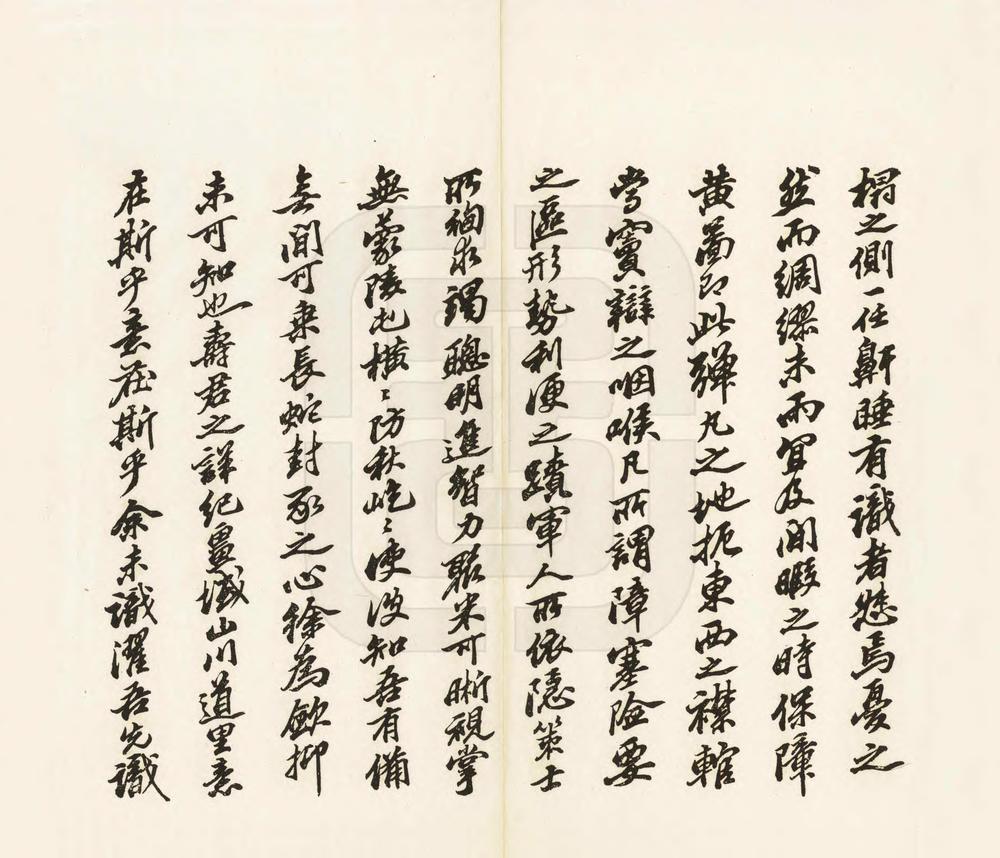 榻之側一任鼾睡有識者愁焉憂之
然而綢繆未雨宜及閒暇之時保障
黃圖即此彈丸之地扼東西之襟轄
當竇辯之咽喉凡所謂障塞險要
之區形勢利便之蹟軍人所依隱策士
所徇求竭聰明進智力聚米可晰視掌
無蒙陵屯橫〻防秋屹〻使彼知吾有備
無間可乘長蛇封豕之心徐為斂抑
未可知也壽君之詳紀畺域山川道里意
在斯乎意在斯乎余未識濯吾先識